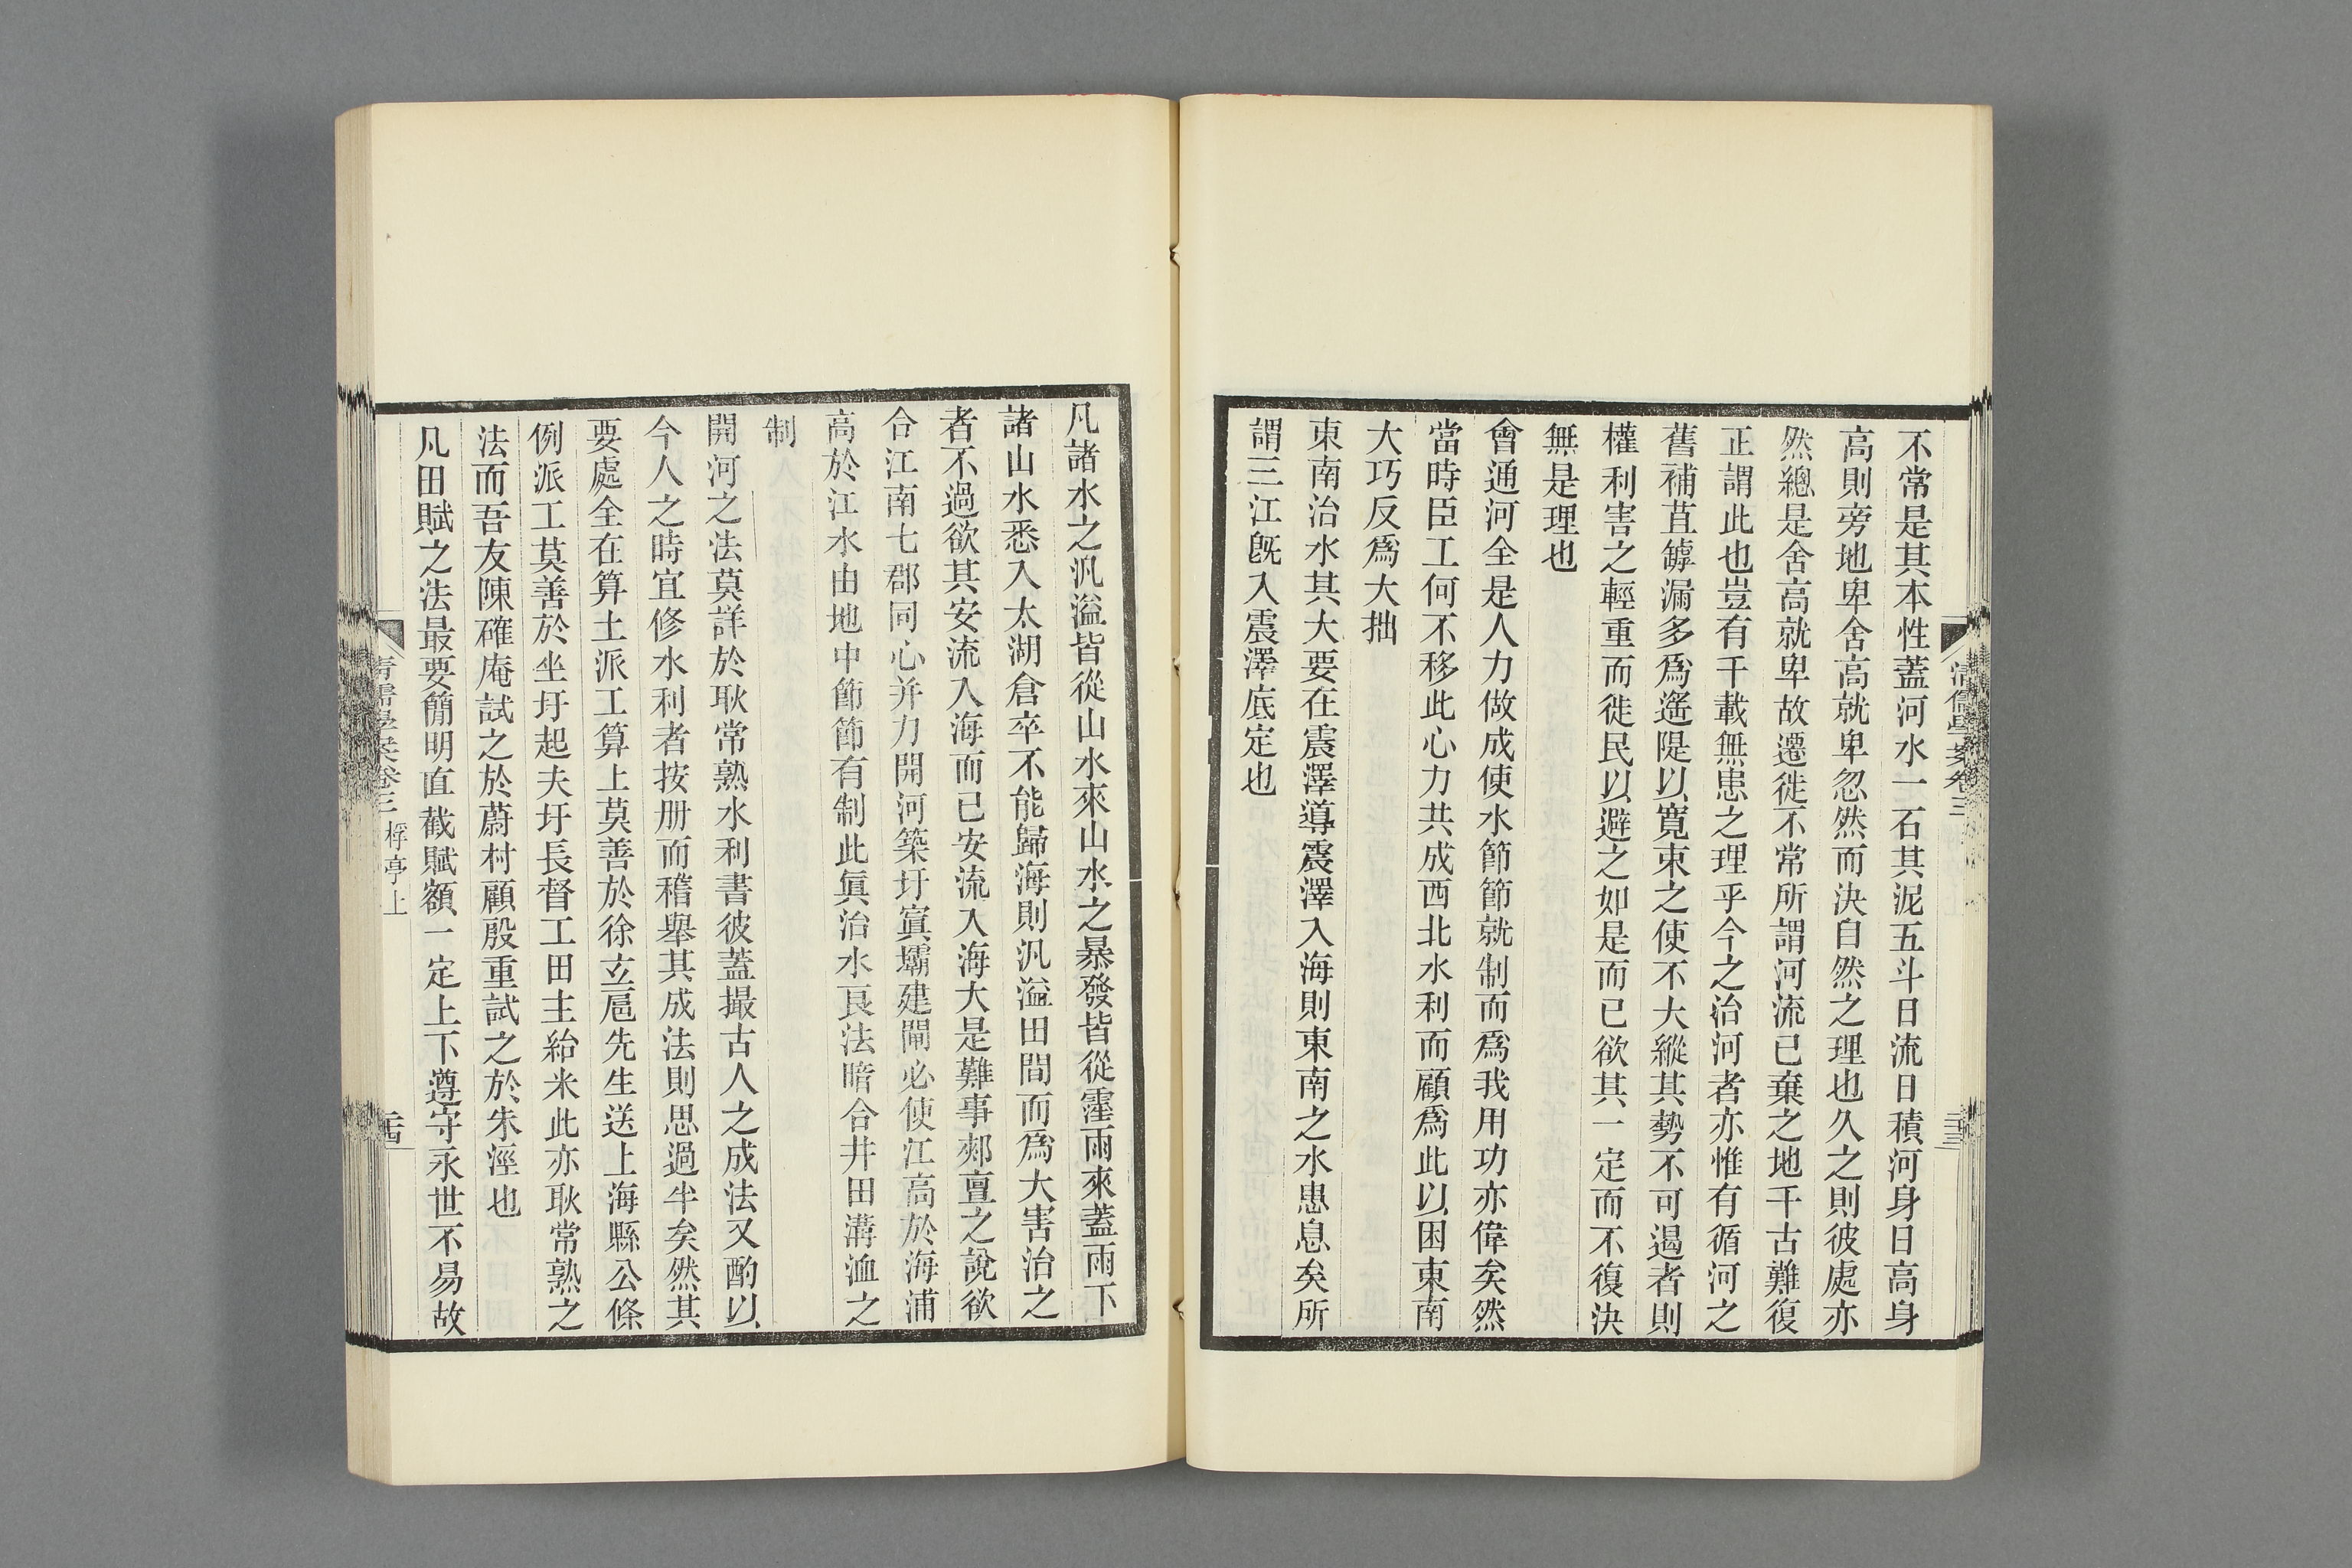 不常是其本性蓋河水一石其泥五斗日流日積河身日高身
高則旁地卑舍高就卑忽然而決自然之理也久之則彼處亦
然總是舍高就卑故遷徙不常所謂河流已棄之地千古難復
正謂此也豈有千載無患之理乎今之治河者亦惟有循河之
舊補苴罅漏多爲遙隄以寬束之使不大縱其勢不可遏者則
權利害之輕重而徙民以避之如是而已欲其一定而不復決
無是理也
會通河全是人力做成使水節節就制而爲我用功亦偉矣然
當時臣工何不移此心力共成西北水利而顧爲此以困東南
大巧反爲大拙
東南治水其大要在震澤導震澤入海則東南之水患息矣所
謂三江旣入震澤底定也
清儒學案卷三
二十三
凡諸水之汎溢皆從山水來山水之暴發皆從霪雨來蓋雨下
諸山水悉入太湖倉卒不能歸海則汎溢田間而爲大害治之
者不過欲其安流入海而已安流入海大是難事郟亶之說欲
合江南七郡同心并力開河築圩窴壩建閘必使江高於海浦
高於江水由地中節節有制此眞治水良法暗合井田溝洫之
制
開河之法莫詳於耿常熟水利書彼蓋撮古人之成法又酌以
今人之時宜修水利者按册而稽舉其成法則思過半矣然其
要處全在算土派工算土莫善於徐玄扈先生送上海縣公條
例派工莫善於坐圩起夫圩長督工田主給米此亦耿常熟之
法而吾友陳確庵試之於蔚村顧殷重試之於朱涇也
凡田賦之法最要簡明直截賦額一定上下遵守永世不易故
清儒學案卷三 桴亭上
二十四